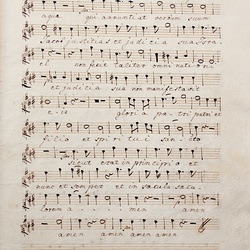 aqua qui annuntiat verbum suum
Jacob justitias et judicia sua Isra
el non fecit taliter omni nationi
et judicia sua non manifestavit
e is gloria patri patri et
filio et spiritui sancto
sicut erat in principio et
nunc et semper et in sæcula sæcu
lorum a men amen
amen amen amen